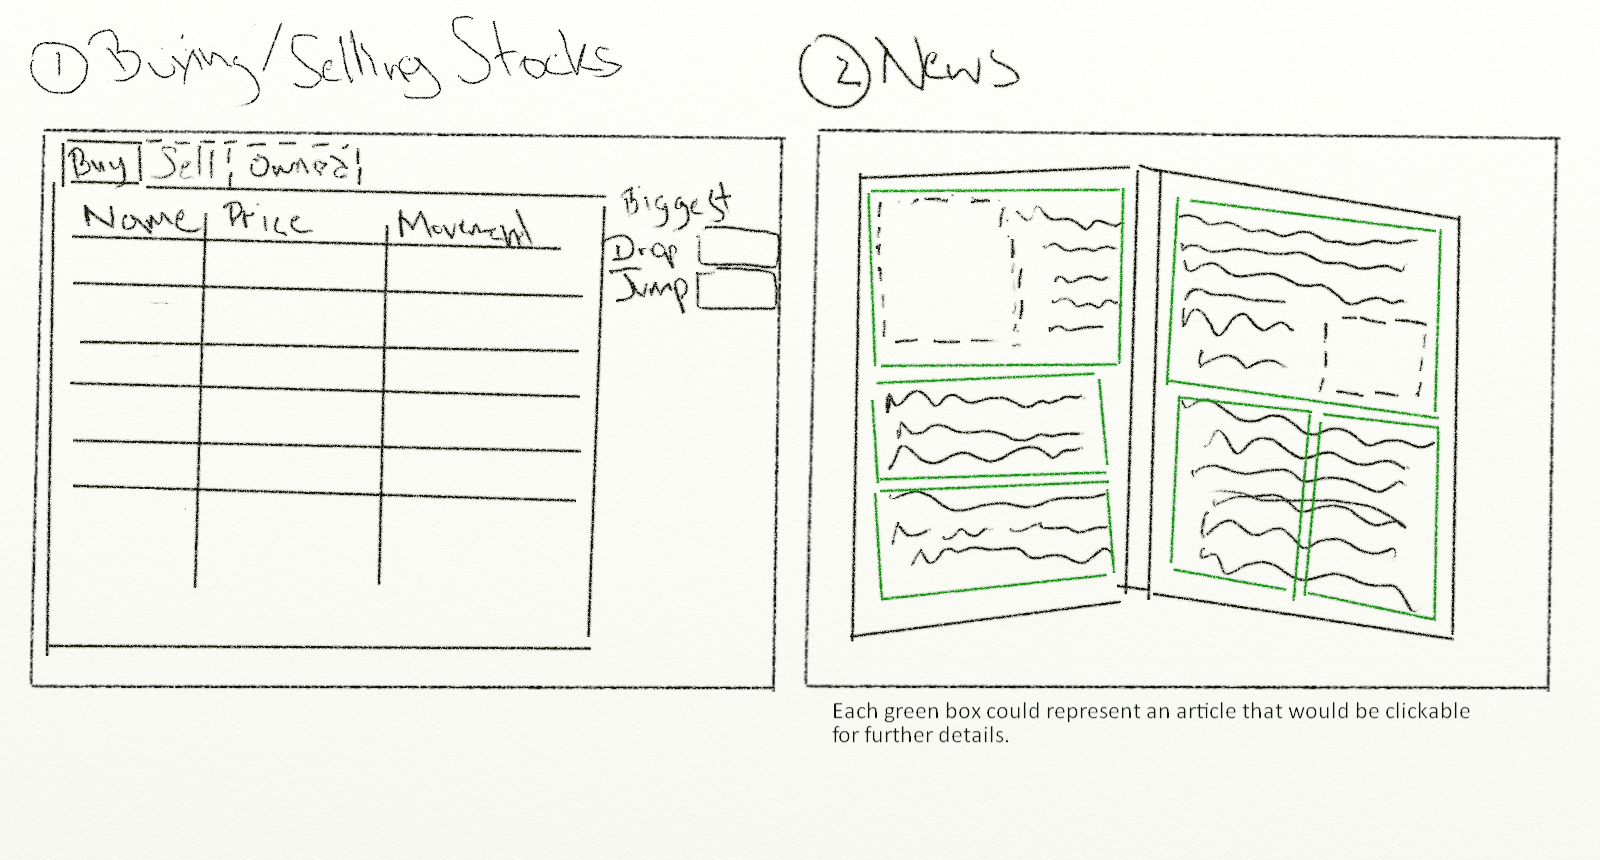 1 Buying/Selling Stocks
Buy Sell Owned
Name Price Movement
Biggest
Drop
Jump
2 News
Each green box could represent an article that would be clickable
for further details.